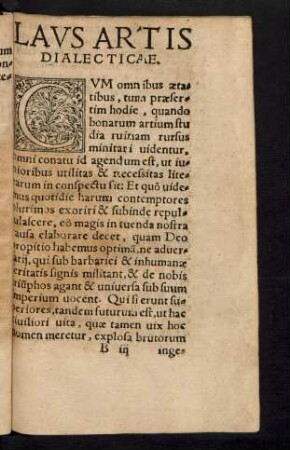 LAVS ARTIS
DIALECTICAE.
CVM omnibus æta-
tibus, tum præser-
tim hodie, quando
bonarum artium stu
dia ruinam rursus
minitari uidentur,
omni conatu id agendum est, ut iu
nioribus utilitas & necessitas lite
rarum in conspectu sit: Et quò uide
mus quotidie harum contemptores
plurimos exoriri & subinde repul
lulascere, eò magis in tuenda nostra
causa elaborare decet, quam Deo
propitio habemus optimã, ne aduer
sarij, qui sub barbariei & inhumanæ
feritatis signis militant, & de nobis
triũphos agant & uniuersa sub suum
imperium uocent. Qui si erunt su
periores, tandem futurum est, ut hæc
ciuiliori uita, quæ tamen uix hoc
nomen meretur, explosa brutorum
B iij inge-